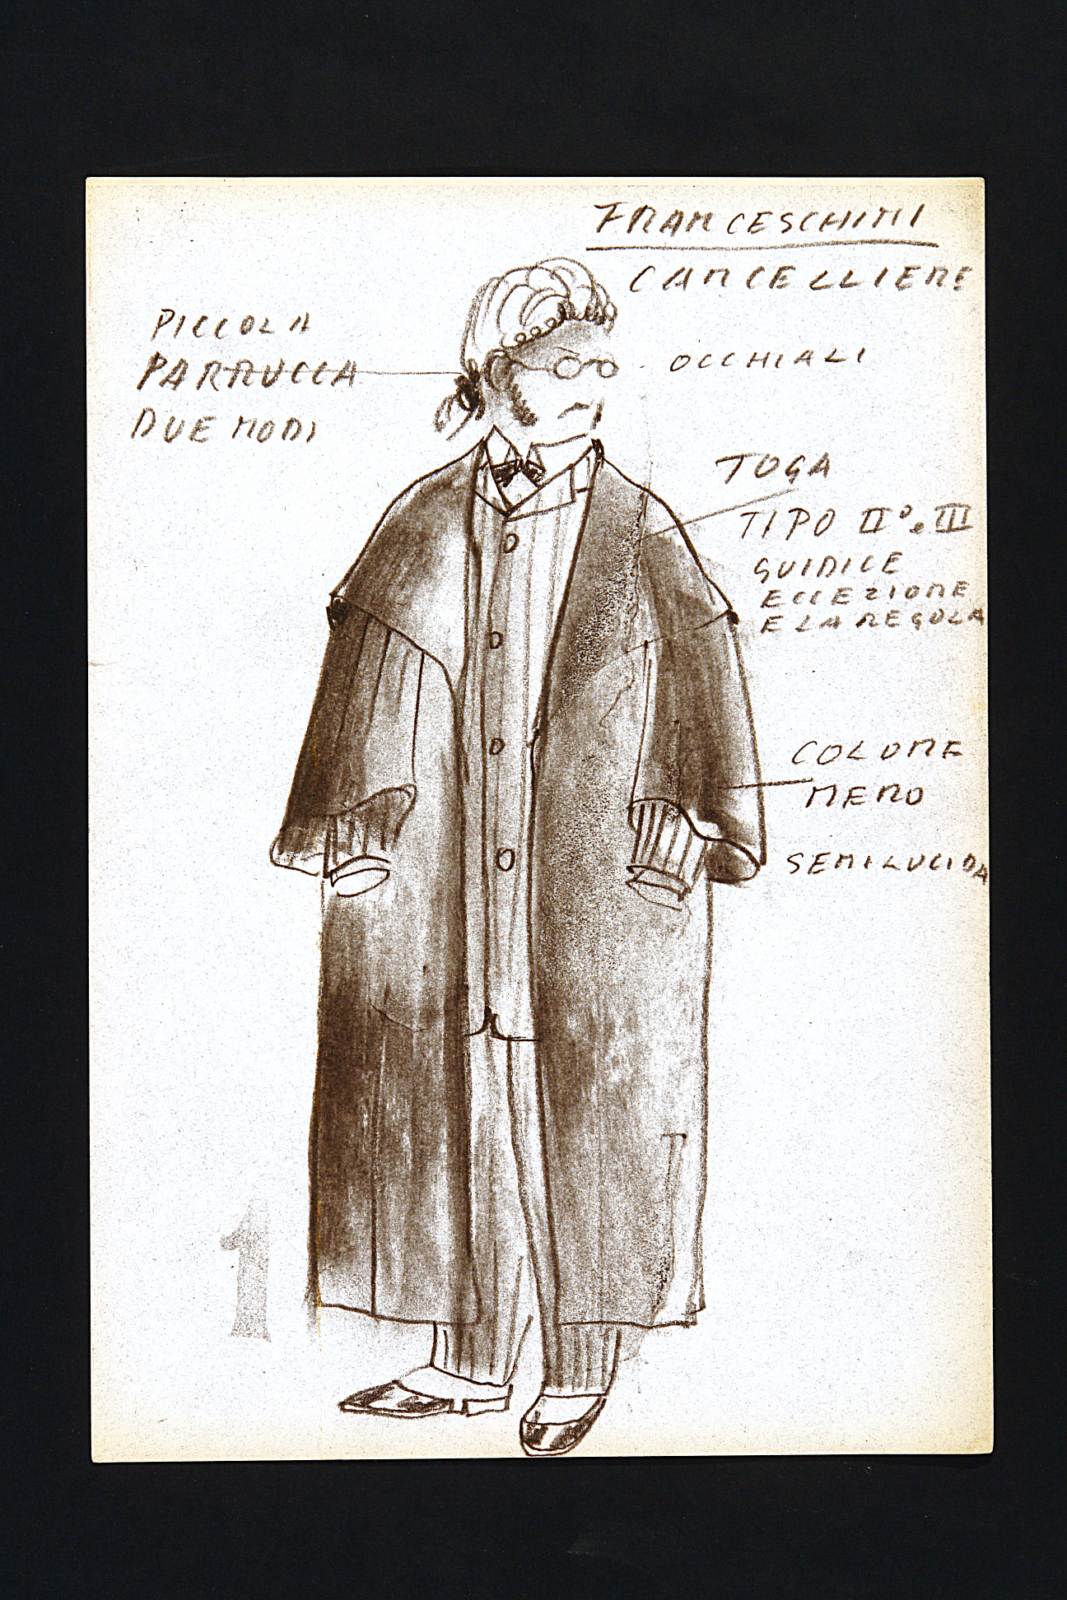 FRANCESCHINI
CANCELLIERE
PICCOLA
PARRUCCA
DUE MODI
OCCHIALI
TOGA
TIPO II° e III
GUIDICE
ECCEZIONE
E LA REGOLA
COLORE
NERO
SEMILUCIDA
1